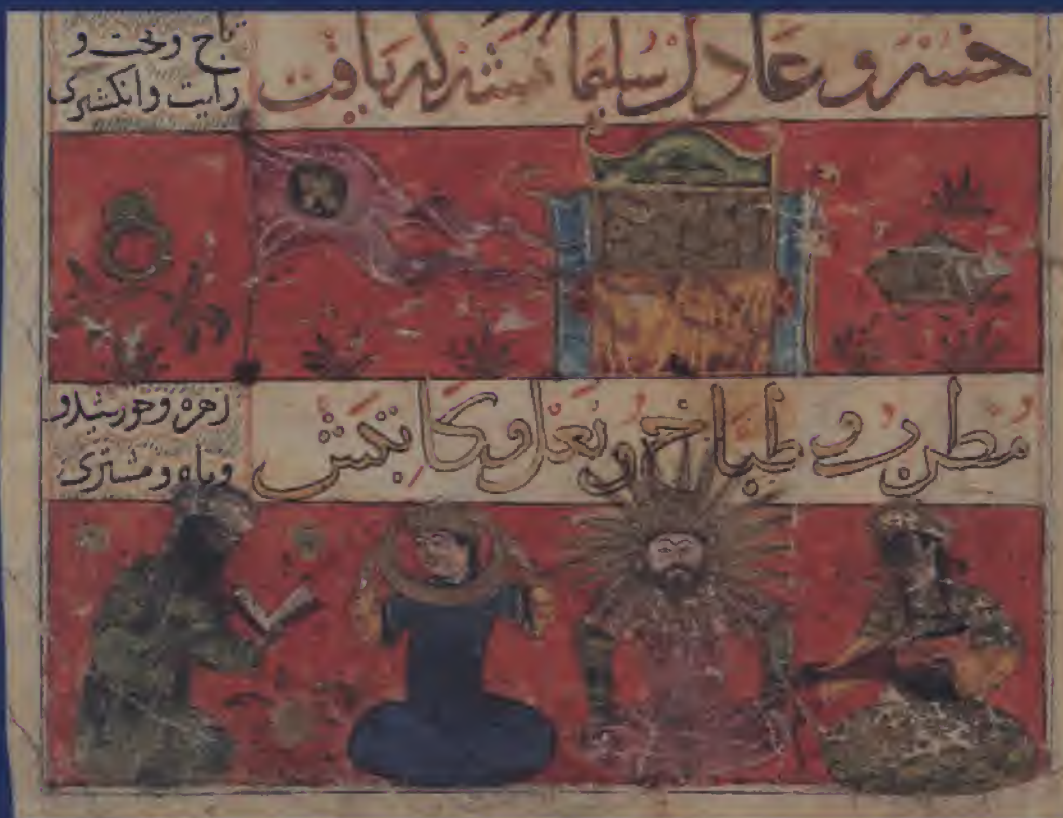 خسرو عادل سلیمان مسند که یافت
تاج و تخت و
رایت و انکشتری
مطرب و طباخ و نعل و کاتبش
زهره و خورشید و
و ماه و مشتری